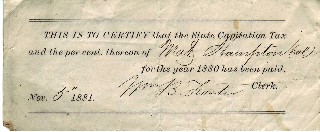 THIS IS TO CERTIFY that the State Capitation Tax
and the per cent. thereon of Wat Hampton (col)
for the year 1880 has been paid.
Nov. 5" 1881. Wm B. Clerk.